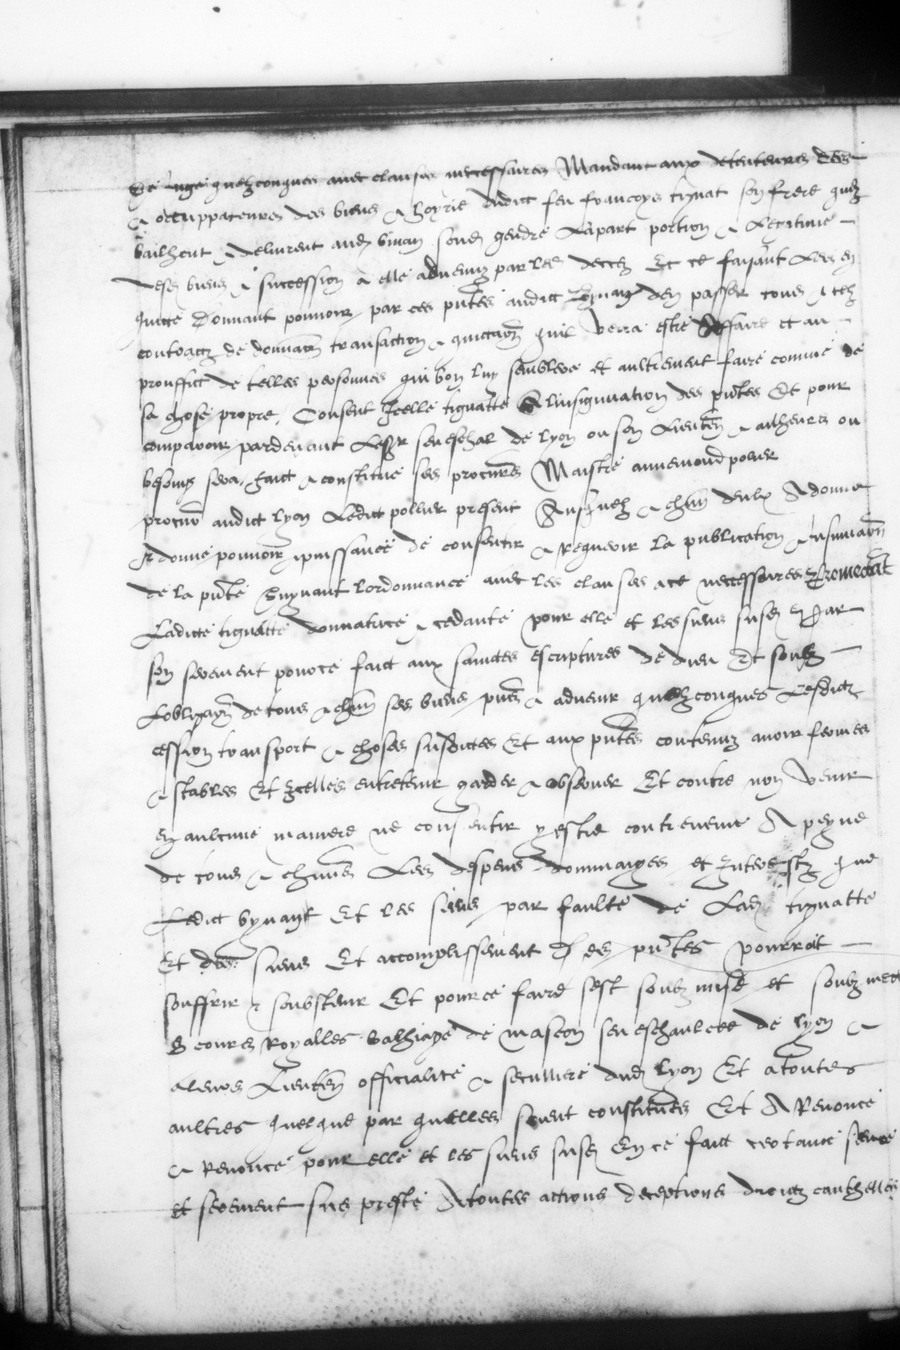 De Juge quelzconques avec clauses neccessaires Mandant aux detenteurs
& occuppateurs des biens & hoyrie dudict feu francoys tignat son frere quilz
bailhent & delivrent aud bynan soud gendre La part portion & Legitime
desd biens & succession a elle advenuz par led decez Et ce faisant Les en
quicte Donnant pouvoir par ces pntes audict bynan den passer tous & telz
contractz de donnaon transaction & quictaon quil verra estre Affaire et au
prouffict de telles personnes que bon luy semblera et aultrement faire comme de
sa chose propre, Consent Icelle tignatte A linsignuation des pntes Et pour
comparoir pardevant Lesgr seneschal de lyon ou son Lieuten & ailheurs ou
besoing sera, faict & constitue ses procureurs Maistre annemond polier
procur audict lyon Ledict pollier present Ausquelz & chun deulx A donne
& donne pouvoir puissance de consentir & requerir la publication & insinuaon
de la pnte suyvant lordonnance avec les clauses a ce neccessaires Promectant
Ladicte tignatte donnatrice & cedante pour elle et les siens susd Par
son serement pource faict aux sainctes escriptures de dieu Et soubz
Lobligaon de tous & chun ses biens pns & advenir quelzconques Lesdictz
cession transport & choses susdictes Et aux pntes contenuz avoir fermes
& stables Et Icelles entretenir garder & observer Et contre non venir
en aulcune maniere ne consentir y estre contrevenu A peyne
de tous & chuns Les despens dommaiges et Interestz que
Ledict bynant Et les siens par faulte de Lad tignatte
Et des siens Et accomplissement des pntes pourroit
souffrir & soubstenir Et pource faire sest soubzmise et soubzmect
Es cours Royalles Balhiage de mascon seneschaulcee de lyon &
a leurs Lieuten officialité & seculiere dud lyon Et a toutes
aultres quelque par quelles soient constituees Et A Renoncé
& Renonce pour elle et les siens susd En ce faict
et serement sus presté A toutes actions deceptions droictz cauthelles